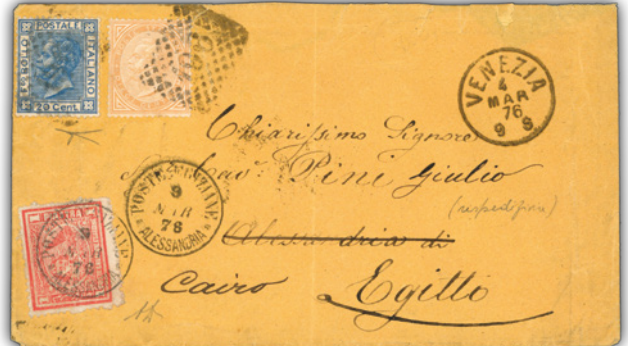 POSTALE
FRANCOBOLLO
ITALIANO
20 Cent.
VENEZIA
4
MAR
76
9 S
Chiarissimo Signore
Cav. Pini Giulio
(rispedizione)
POSTE EGIZIANE
9
MAR
76
ALESSANDRIA
Alessandria di
Cairo Egitto
9
MAR
76